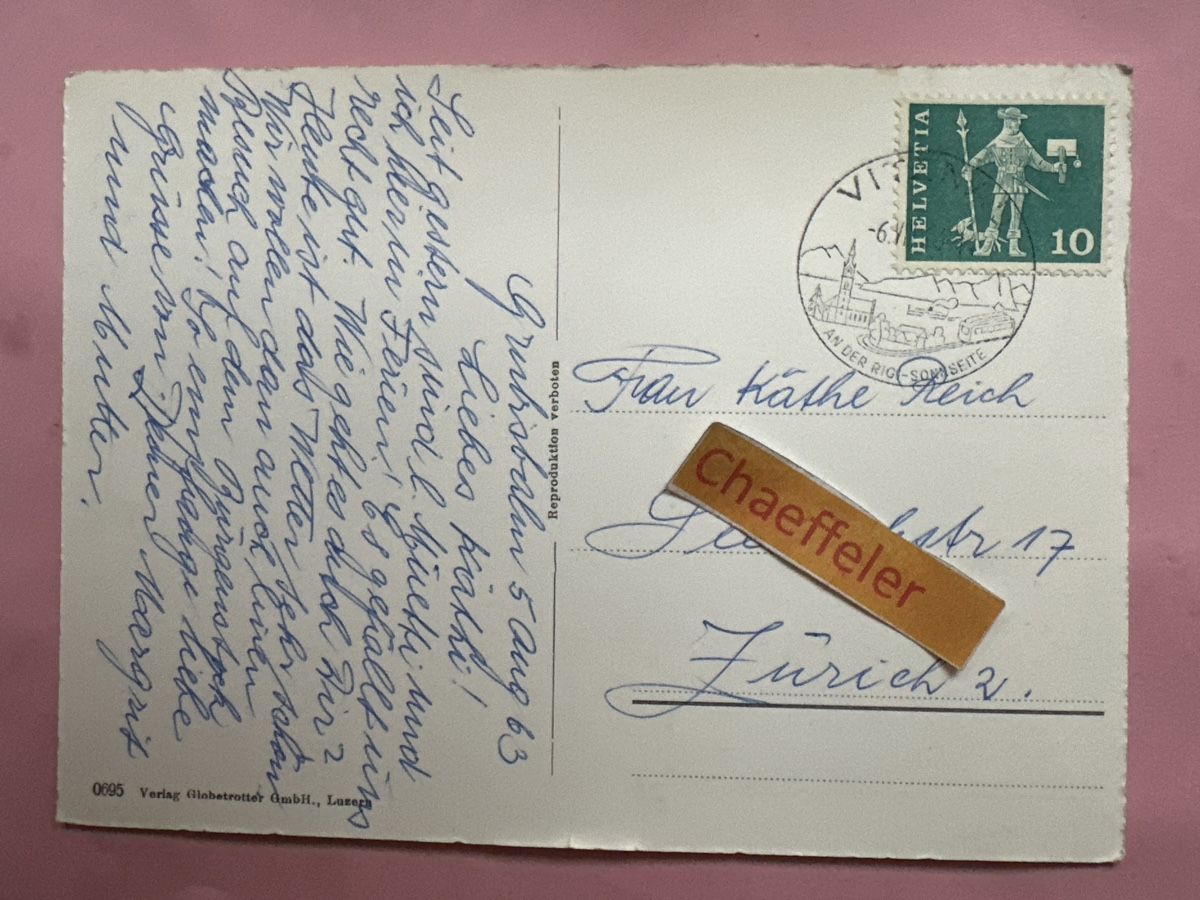 5 Aug 63
Liebes Käthi!
Seit gestern sind l. Muetti und
ich hier in Ferien! Es gefällt uns
recht gut. Wie geht es auch Dir?
Heute ist das Wetter sehr schön
Wir wollen dann auch einen
Besuch auf dem Bürgenstock
machen! So empfange liebe
Grüsse von Deiner Margrit
und Mutter.
0695 Verlag Globetrotter GmbH., Luzern
Reproduktion verboten
HELVETIA
10
-6.
AN DER RIGI-SONNSEITE
Frau Käthe Reich
Chaeffeler
17
Zürich 2.